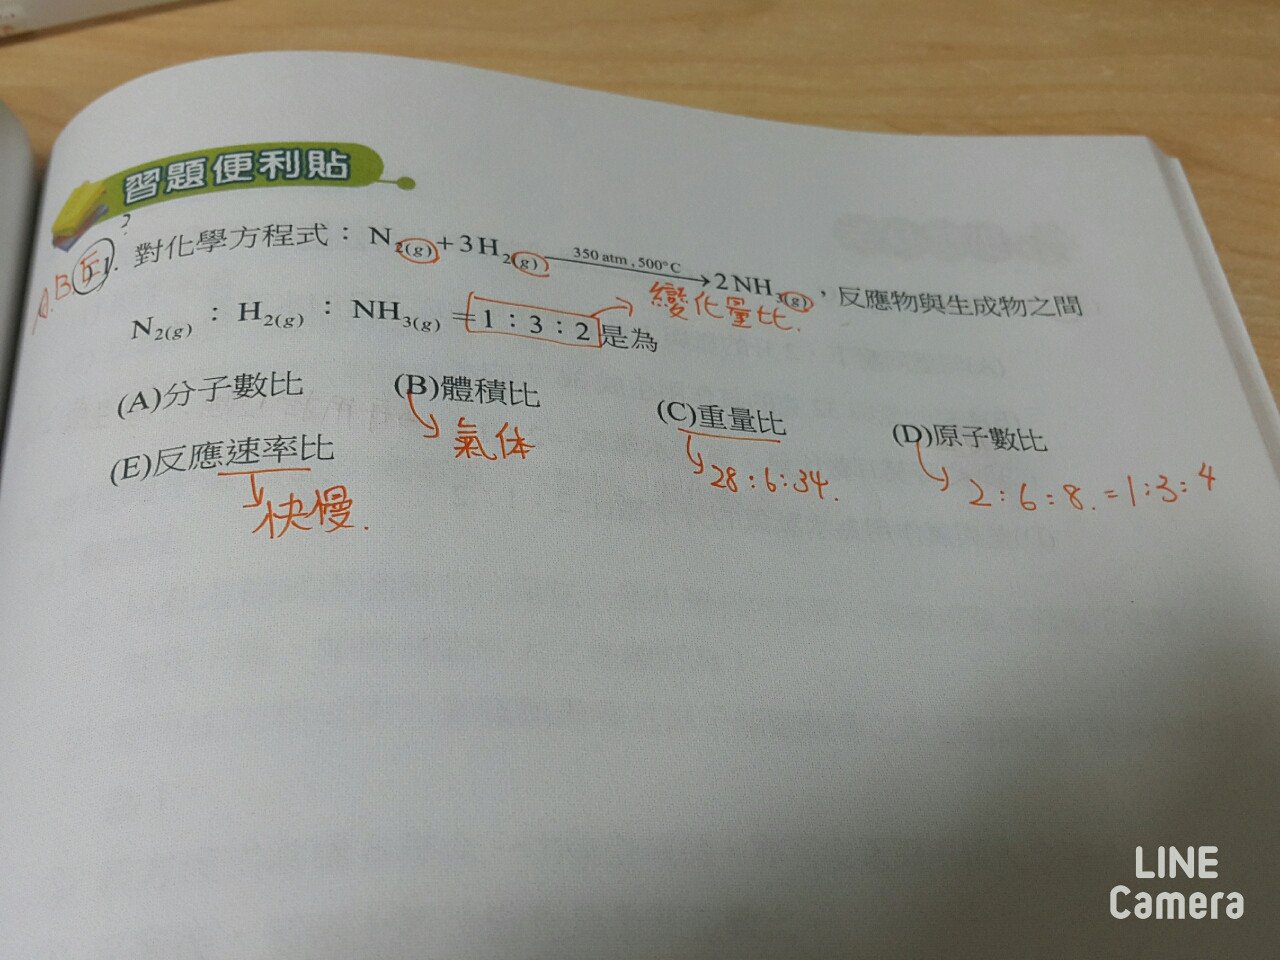 習題便利貼
?
A.B.E 1. 對化學方程式：N2(g)+3H2(g) 350 atm , 500°C → 2NH3(g)，反應物與生成物之間
變化量比.
N2(g)：H2(g)：NH3(g)＝1：3：2是為
(A)分子數比 (B)體積比 (C)重量比 (D)原子數比
氣体 28:6:34. 2:6:8.=1:3:4
(E)反應速率比
快慢.
LINE
Camera